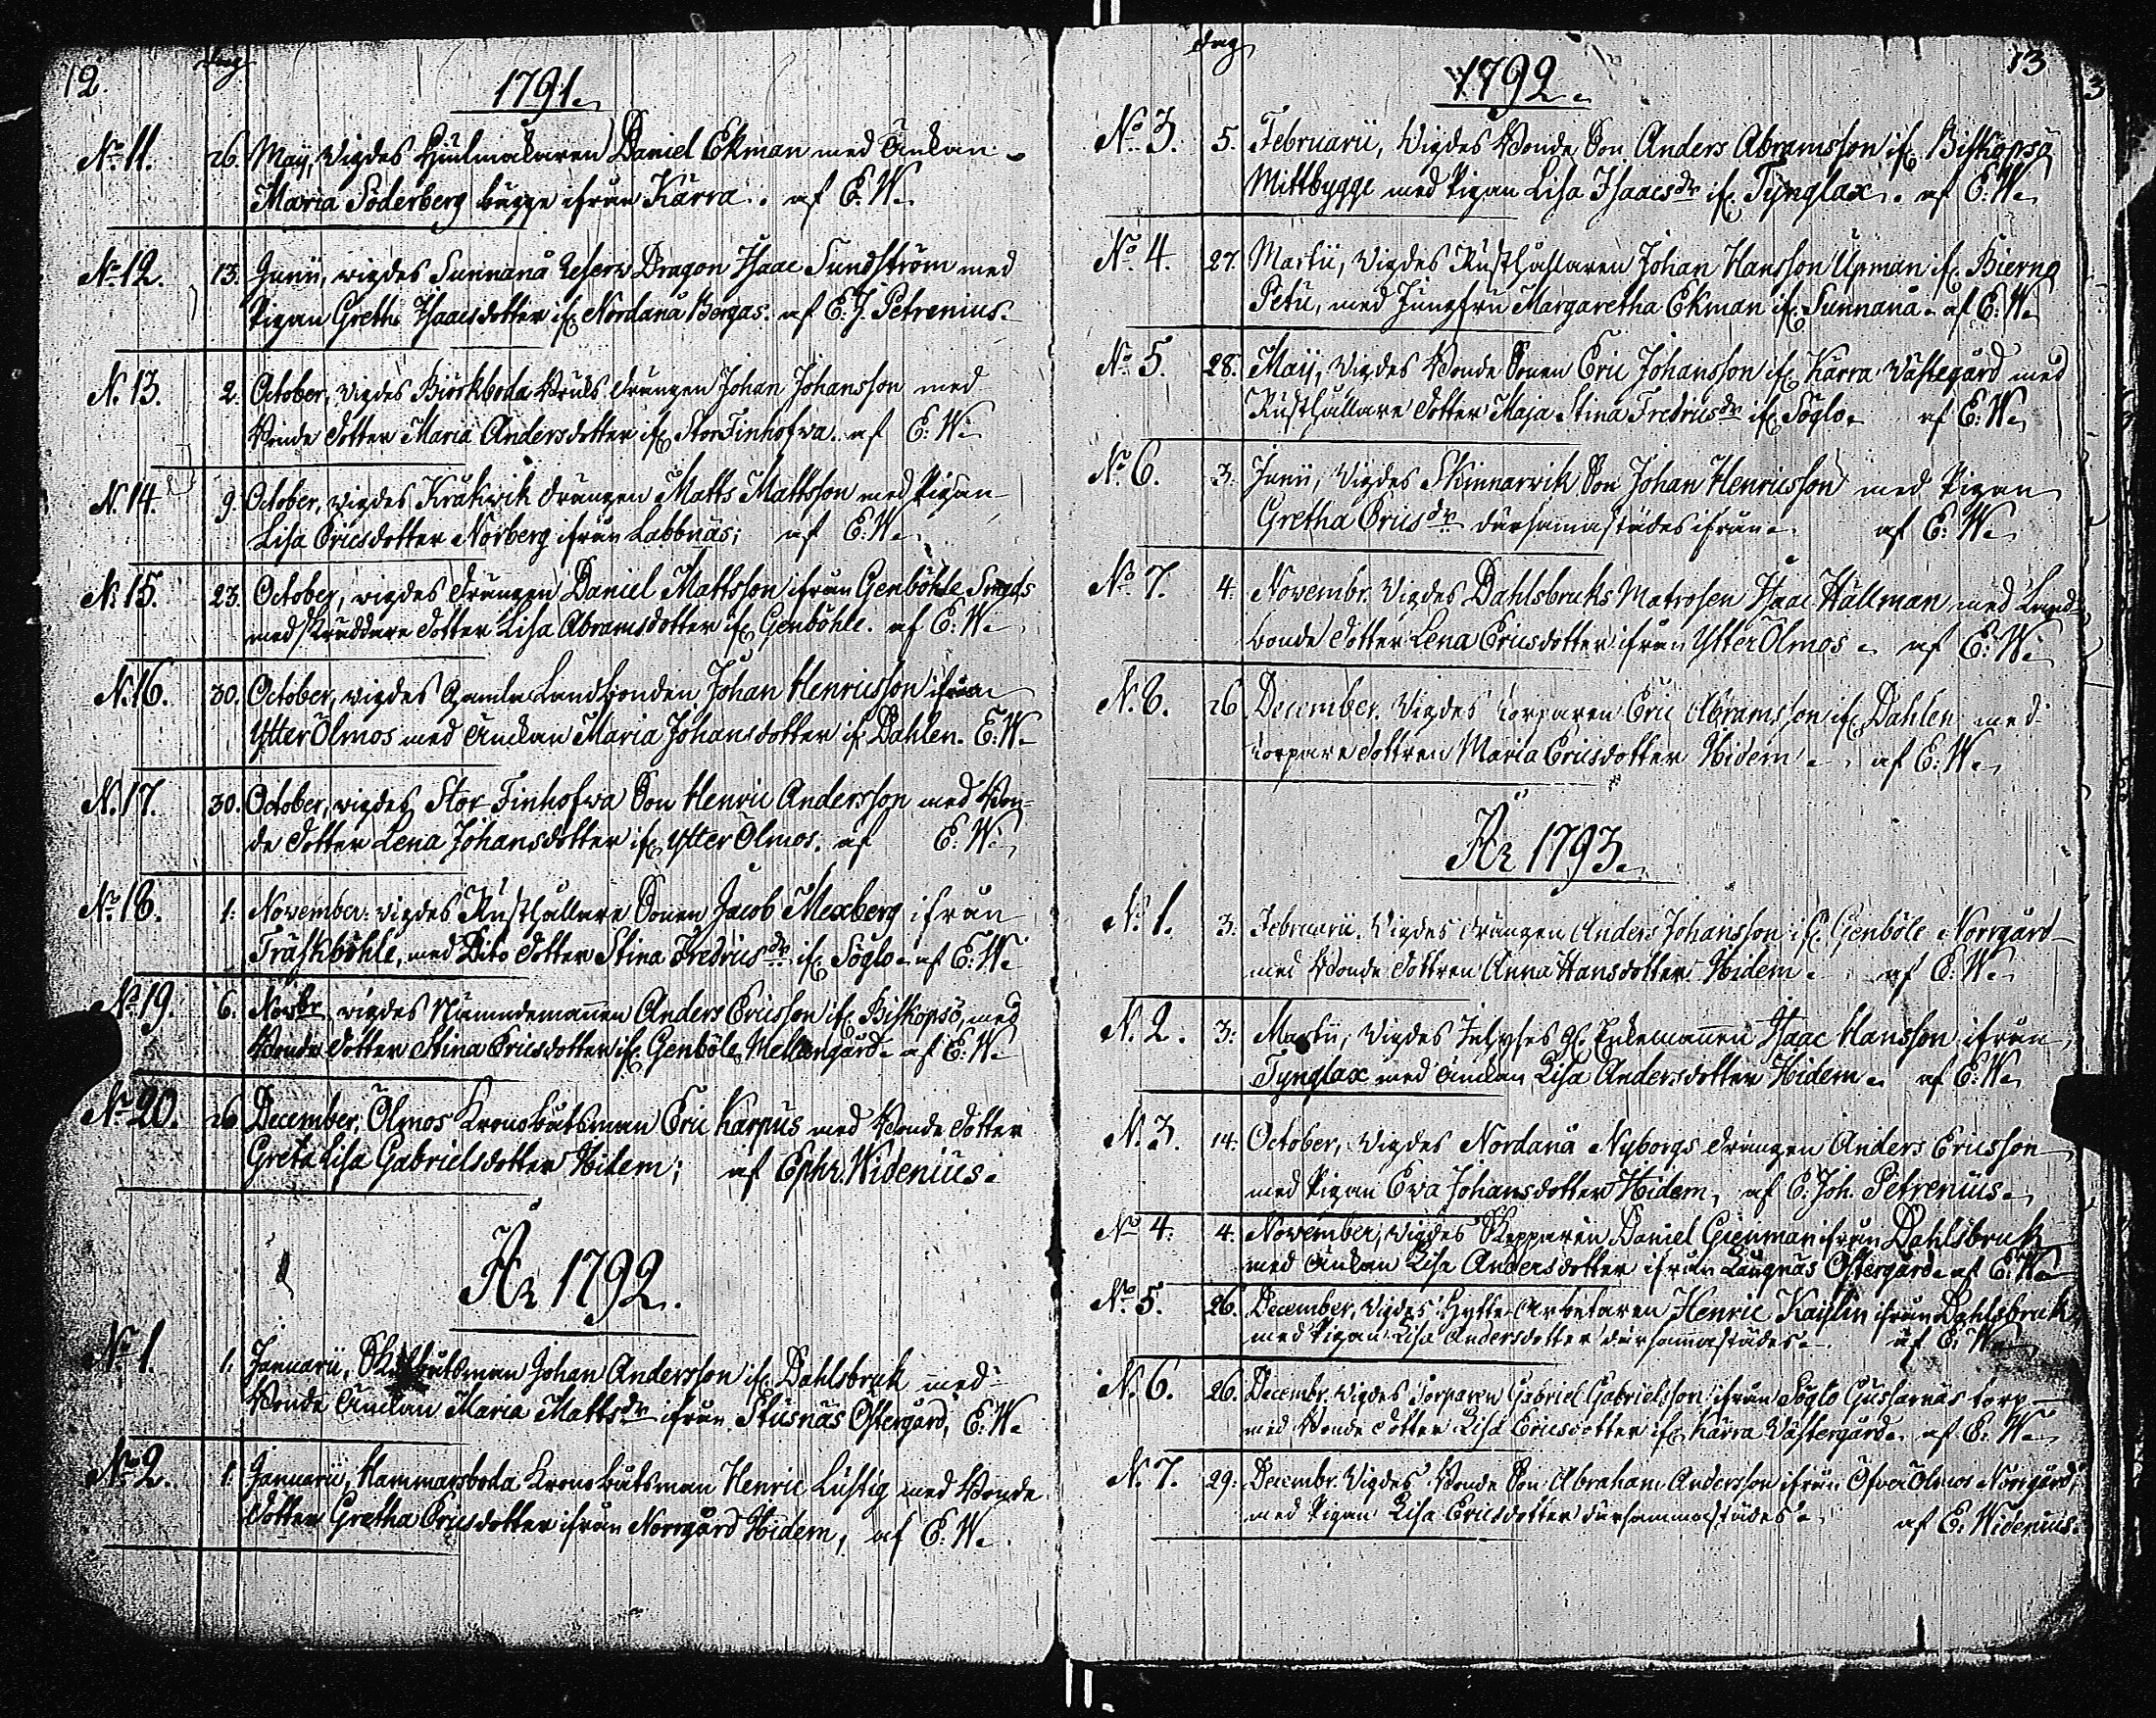 12.
dag
1791.
No 11. 26. Maij, Vigdes Hjulmakaren Daniel Ekman med Änkan
Maria Söderberg bägge ifrån Kärra. af E. W.
No 12. 13. Junii, vigdes Sunnanå Reserv Dragon Isaac Sundström med
Pigan Greth. Isaacsdotter if. Nordanå Bergas. af E. J. Petrenius.
N. 13. 2. October, vigdes Biörkboda Bruks drängen Johan Johansson med
Bonde dotter Maria Andersdotter if. StorFinhofwa. af E. W.
N. 14. 9. October, vigdes Kråkwik drängen Matts Mattsson med Pigan
Lisa Ericsdotter Norberg ifrån Labbnäs; af E. W.
N. 15. 23. October, vigdes drängen Daniel Mattsson ifrån Genböhle Smeds
med Skräddare dotter Lisa Abramsdotter if. Genböhle. af E. W.
N. 16. 30. October, vigdes Gamla Landbonden Johan Henricsson ifrån
Ytter Ölmos med Änkan Maria Johansdotter if. Dahlen. E. W.
N. 17. 30. October, vigdes Stor Finhofwa Son Henric Andersson med Bon-
de dotter Lena Johansdotter if. Ytter Ölmos. af E. W.
No 18. 1. November. vigdes Rusthållare Sonen Jacob Mexberg ifrån
Träskböhle, med Dito dotter Stina Fredricsdr. if. Söglo. af E. W.
No 19. 6. Novbr. vigdes Nämndemannen Anders Ericsson if. Biskopsö, med
Bonde dotter Stina Ericsdotter if. Genböle Mellangård. af E. W.
No 20. 26 December, Ölmos Kronobåtsman Eric Karpus med Bonde dotter
Greta Lisa Gabrielsdotter Ibidem; af Ephr. Widenius.
År 1792.
No 1. 1. Januarii, båtsman Johan Andersson if. Dahlsbruk med
Bonde Änkan Maria Mattsdr ifrån Stusnäs Östergård, E. W.
No 2. 1. Januarii, Hammarsboda Krono båtsman Henric Lustig med Bonde
dotter Gretha Ericsdotter ifrån Norrgård Ibidem, af E. W.
dag
1792.
13
3
No 3. 5. Februarii, Vigdes Bonde Son Anders Abramsson if. Biskopsö
Mittbygge med Pigan Lisa Isaacsdr if. Tynglax. af E. W.
No 4. 27. Martii, Vigdes Rusthållaren Johan Hansson Upman if. Bierno
Petu, med Jungfru Margaretha Ekman if. Sunnanå. af E. W.
No 5. 28. Maij, Vigdes Bonde Sonen Eric Johansson if. Kärra Västegård med
Rusthållare dotter Maja Stina Fredricsdr if. Söglo. af E. W.
No 6. 3. Junii, Vigdes Skinnarwik Son Johan Henricsson med Pigan
Gretha Ericsdr därsammastädes ifrån. af E. W.
No 7. 4. Novembr. Vigdes Dahlsbruks Matrosen Isaac Hällman med Land-
bonde dotter Lena Ericsdotter ifrån Ytter Ölmos. af E. W.
N. 8. 26 December. Vigdes torparen Eric Abramsson if. Dahlen med
torpare dottren Maria Ericsdotter Ibidem. af E. W.
År 1793.
N. 1. 3. Februarii. Vigdes drängen Anders Johansson if. Genböle Norrgård
med Bonde dottren Anna Hansdotter Ibidem. af E. W.
N. 2. 3. Martii, Vigdes Enkemannen Isaac Hansson ifrån
Tynglax med Änkan Lisa Andersdotter Ibidem. af E. W.
N. 3. 14. October, Vigdes Nordanå Nyborgs drängen Anders Ericsson
med Pigan Eva Johansdotter Ibidem, af E. Joh. Petrenius.
No 4. 4. November, Vigdes Skepparen Daniel Grenman ifrån Dahlsbruk
med Änkan Lisa Andersdotter ifrån Långnäs Östergård. af E. W.
No 5. 26. December, Vigdes Hytte Arbetaren Henric Kajlin ifrån Dahlsbruk,
med Pigan Lisa Andersdotter därsammastädes. af E. W.
N. 6. 26. Decembr. Vigdes Torparen Gabriel Gabrielsson ifrån Söglo torp
med Bonde dotter Lisa Ericsdotter if. Kärra Västergård. af E. W.
N. 7. 29. Decembr. Vigdes Bonde Son Abraham Andersson ifrån Öfver Ölmos Norrgård,
med Pigan Lisa Ericsdotter därsammastädes. af E. Widenius.